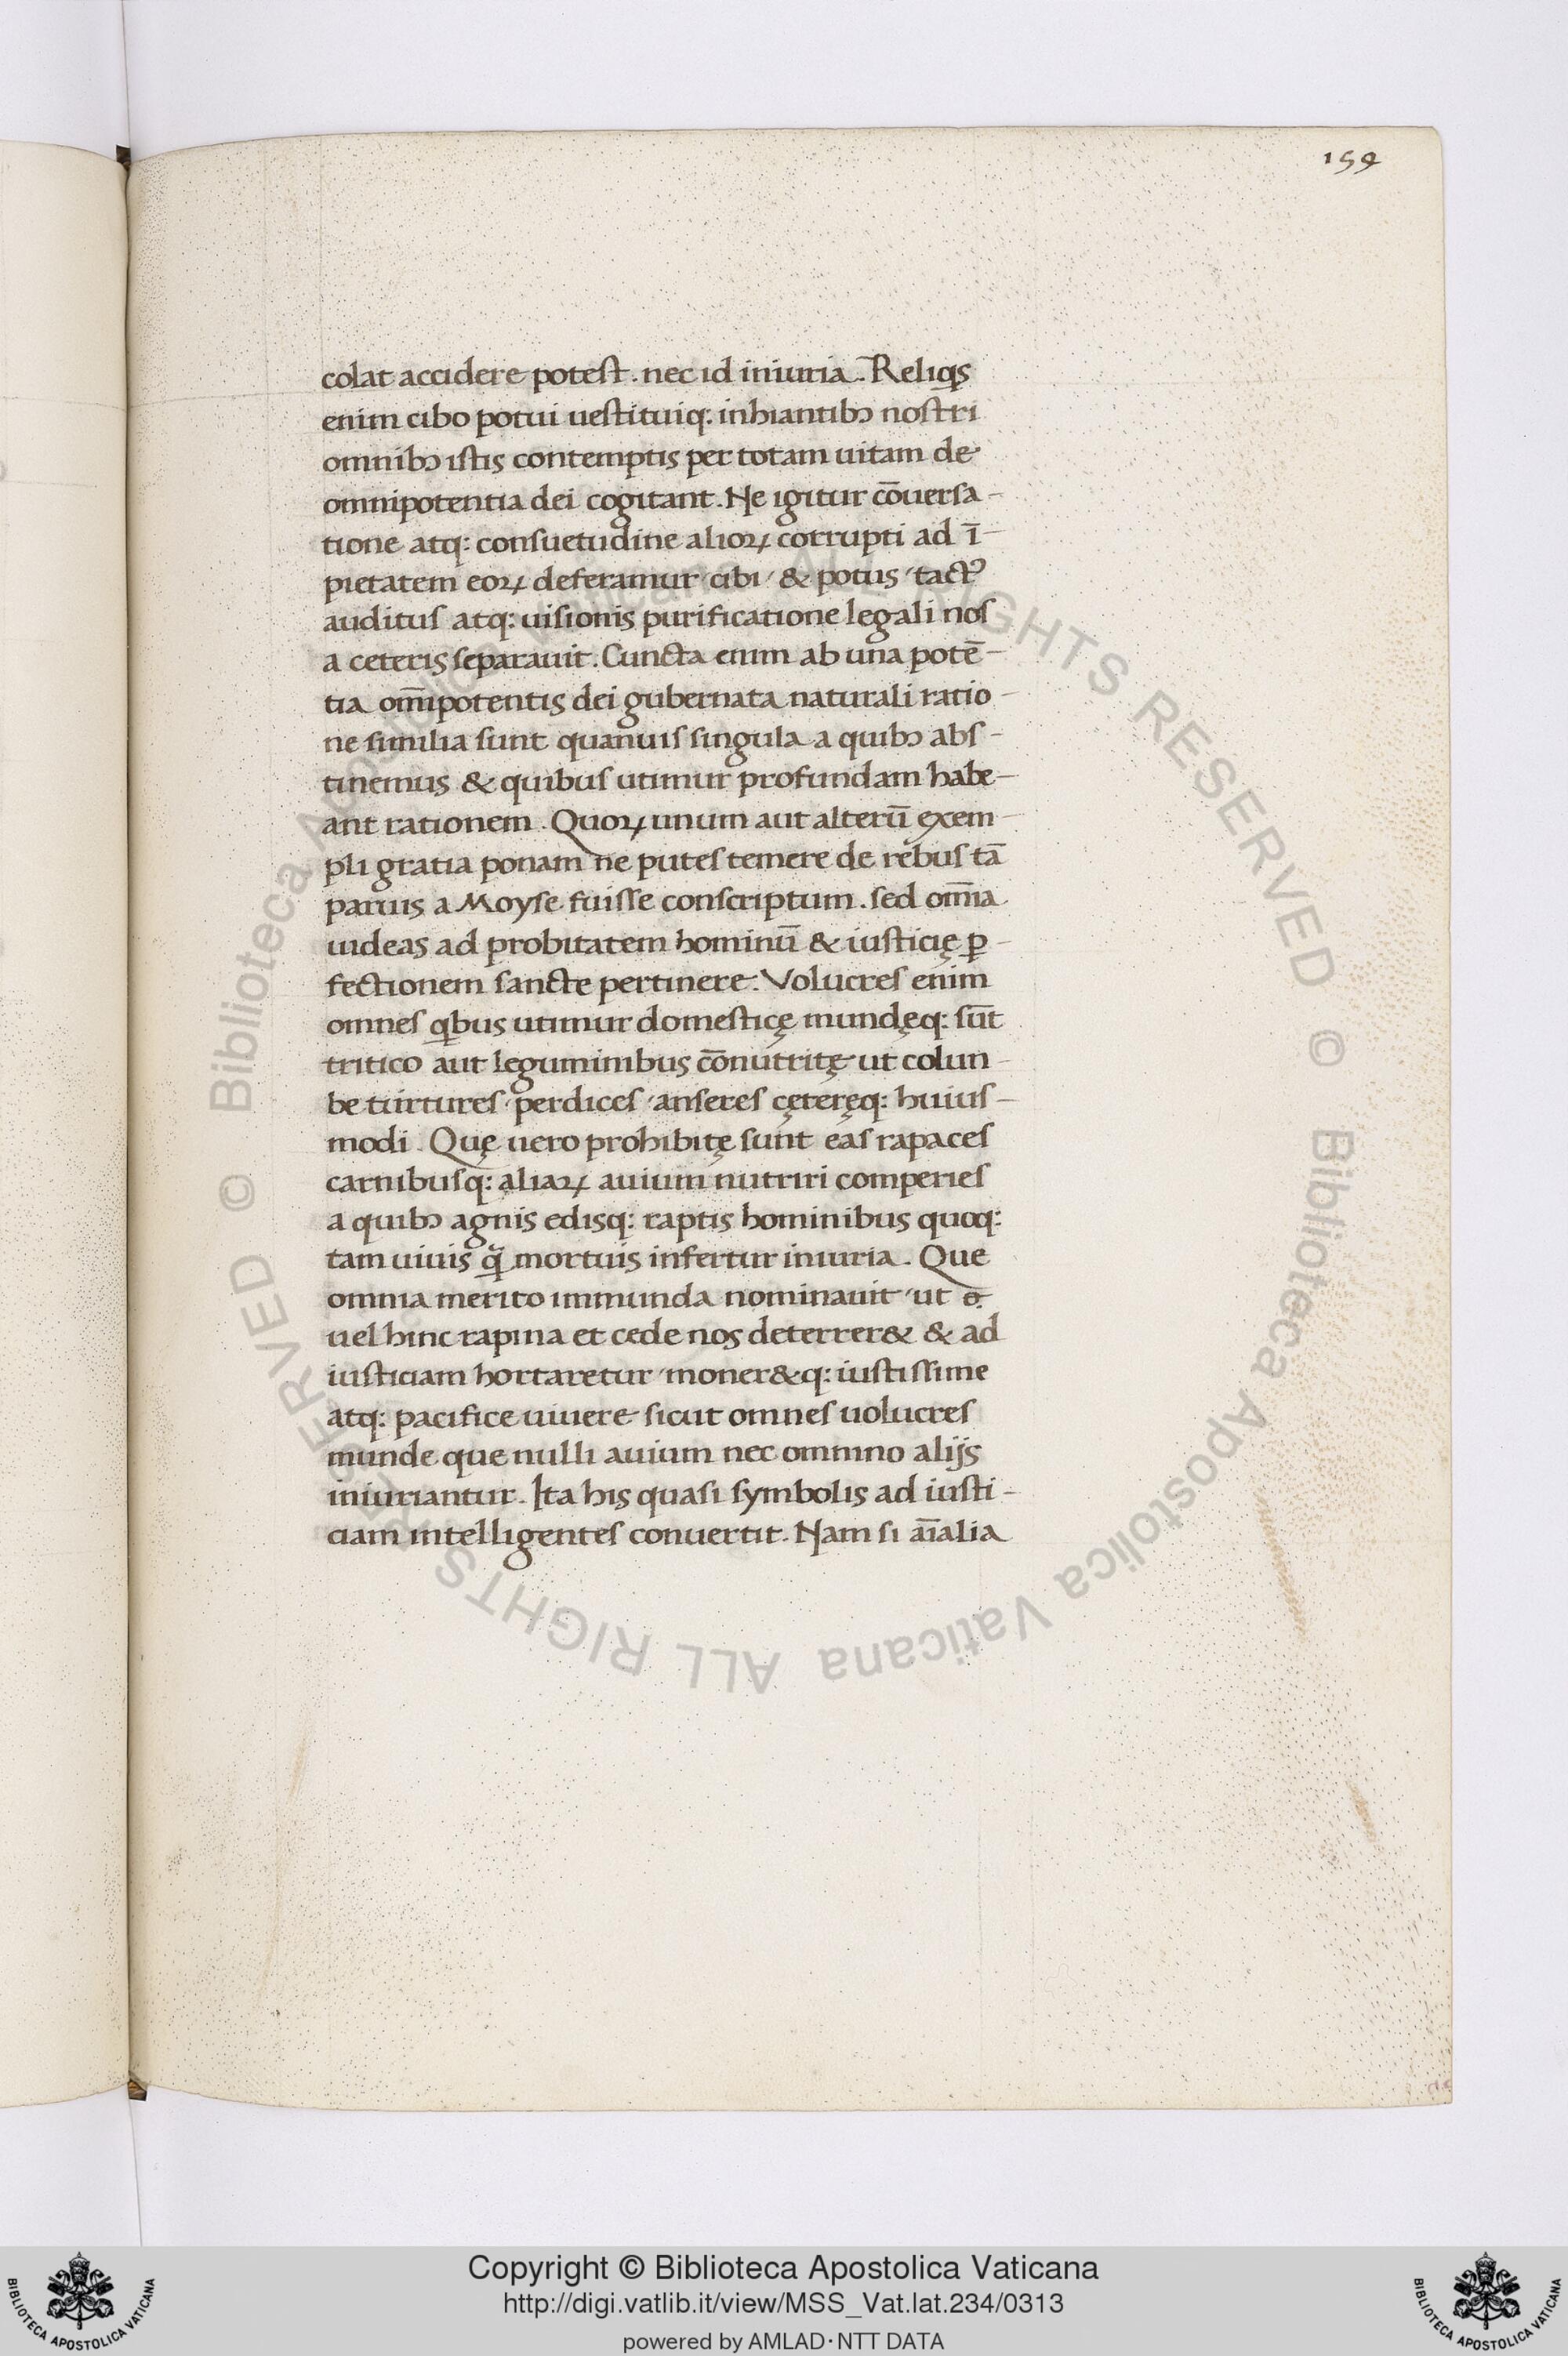 159
colat accidere potest. nec id iniuria. Reliqs
enim cibo potui uestituiq: inhiantibꝰ nostri
omnibꝰ istis contemptis per totam uitam de
omnipotentia dei cogitant. Ne igitur cōuersa-
tione atq: consuetudine alioꝝ corrupti ad ī-
pietatem eoꝝ deferamur / cibi / & potus / tactꝰ
auditus atq: uisionis purificatione legali nos
a ceteris separauit. Cuncta enim ab una potē-
tia om̄ipotentis dei gubernata naturali ratio-
ne similia sunt quanuis singula a quibꝰ abs-
tinemus & quibus utimur profundam habe-
ant rationem. Quoꝝ unum aut alterū exem-
pli gratia ponam ne putes temere de rebus tā
paruis a Moyse fuisse conscriptum. sed om̄ia
uideas ad probitatem hominū & iusticię ꝑ-
fectionem sancte pertinere. Volucres enim
omnes qbus utimur domesticę mundęq: sūt
tritico aut leguminibus cōnutritę ut colun-
be turtures / perdices / anseres cęteręq: huius-
modi. Quę uero prohibitę sunt eas rapaces
carnibusq: aliaꝝ auium nutriri comperies
a quibꝰ agnis edisq: raptis hominibus quoq:
tam uiuis q̃ mortuis infertur iniuria. Que
omnia merito immunda nominauit / ut
uel hinc rapina et cede nos deterrer& & ad
iusticiam hortaretur / moner&q: iustissime
atq: pacifice uiuere sicut omnes uolucres
munde que nulli auium nec omnino alijs
iniuriantur. Ita his quasi symbolis ad iusti-
ciam intelligentes conuertit. Nam si aīalia
© Biblioteca Apostolica Vaticana ALL RIGHTS RESERVED
© Biblioteca Apostolica Vaticana ALL RIGHTS RESERVED
BIBLIOTECA APOSTOLICA VATICANA
Copyright © Biblioteca Apostolica Vaticana
http://digi.vatlib.it/view/MSS_Vat.lat.234/0313
powered by AMLAD·NTT DATA
BIBLIOTECA APOSTOLICA VATICANA